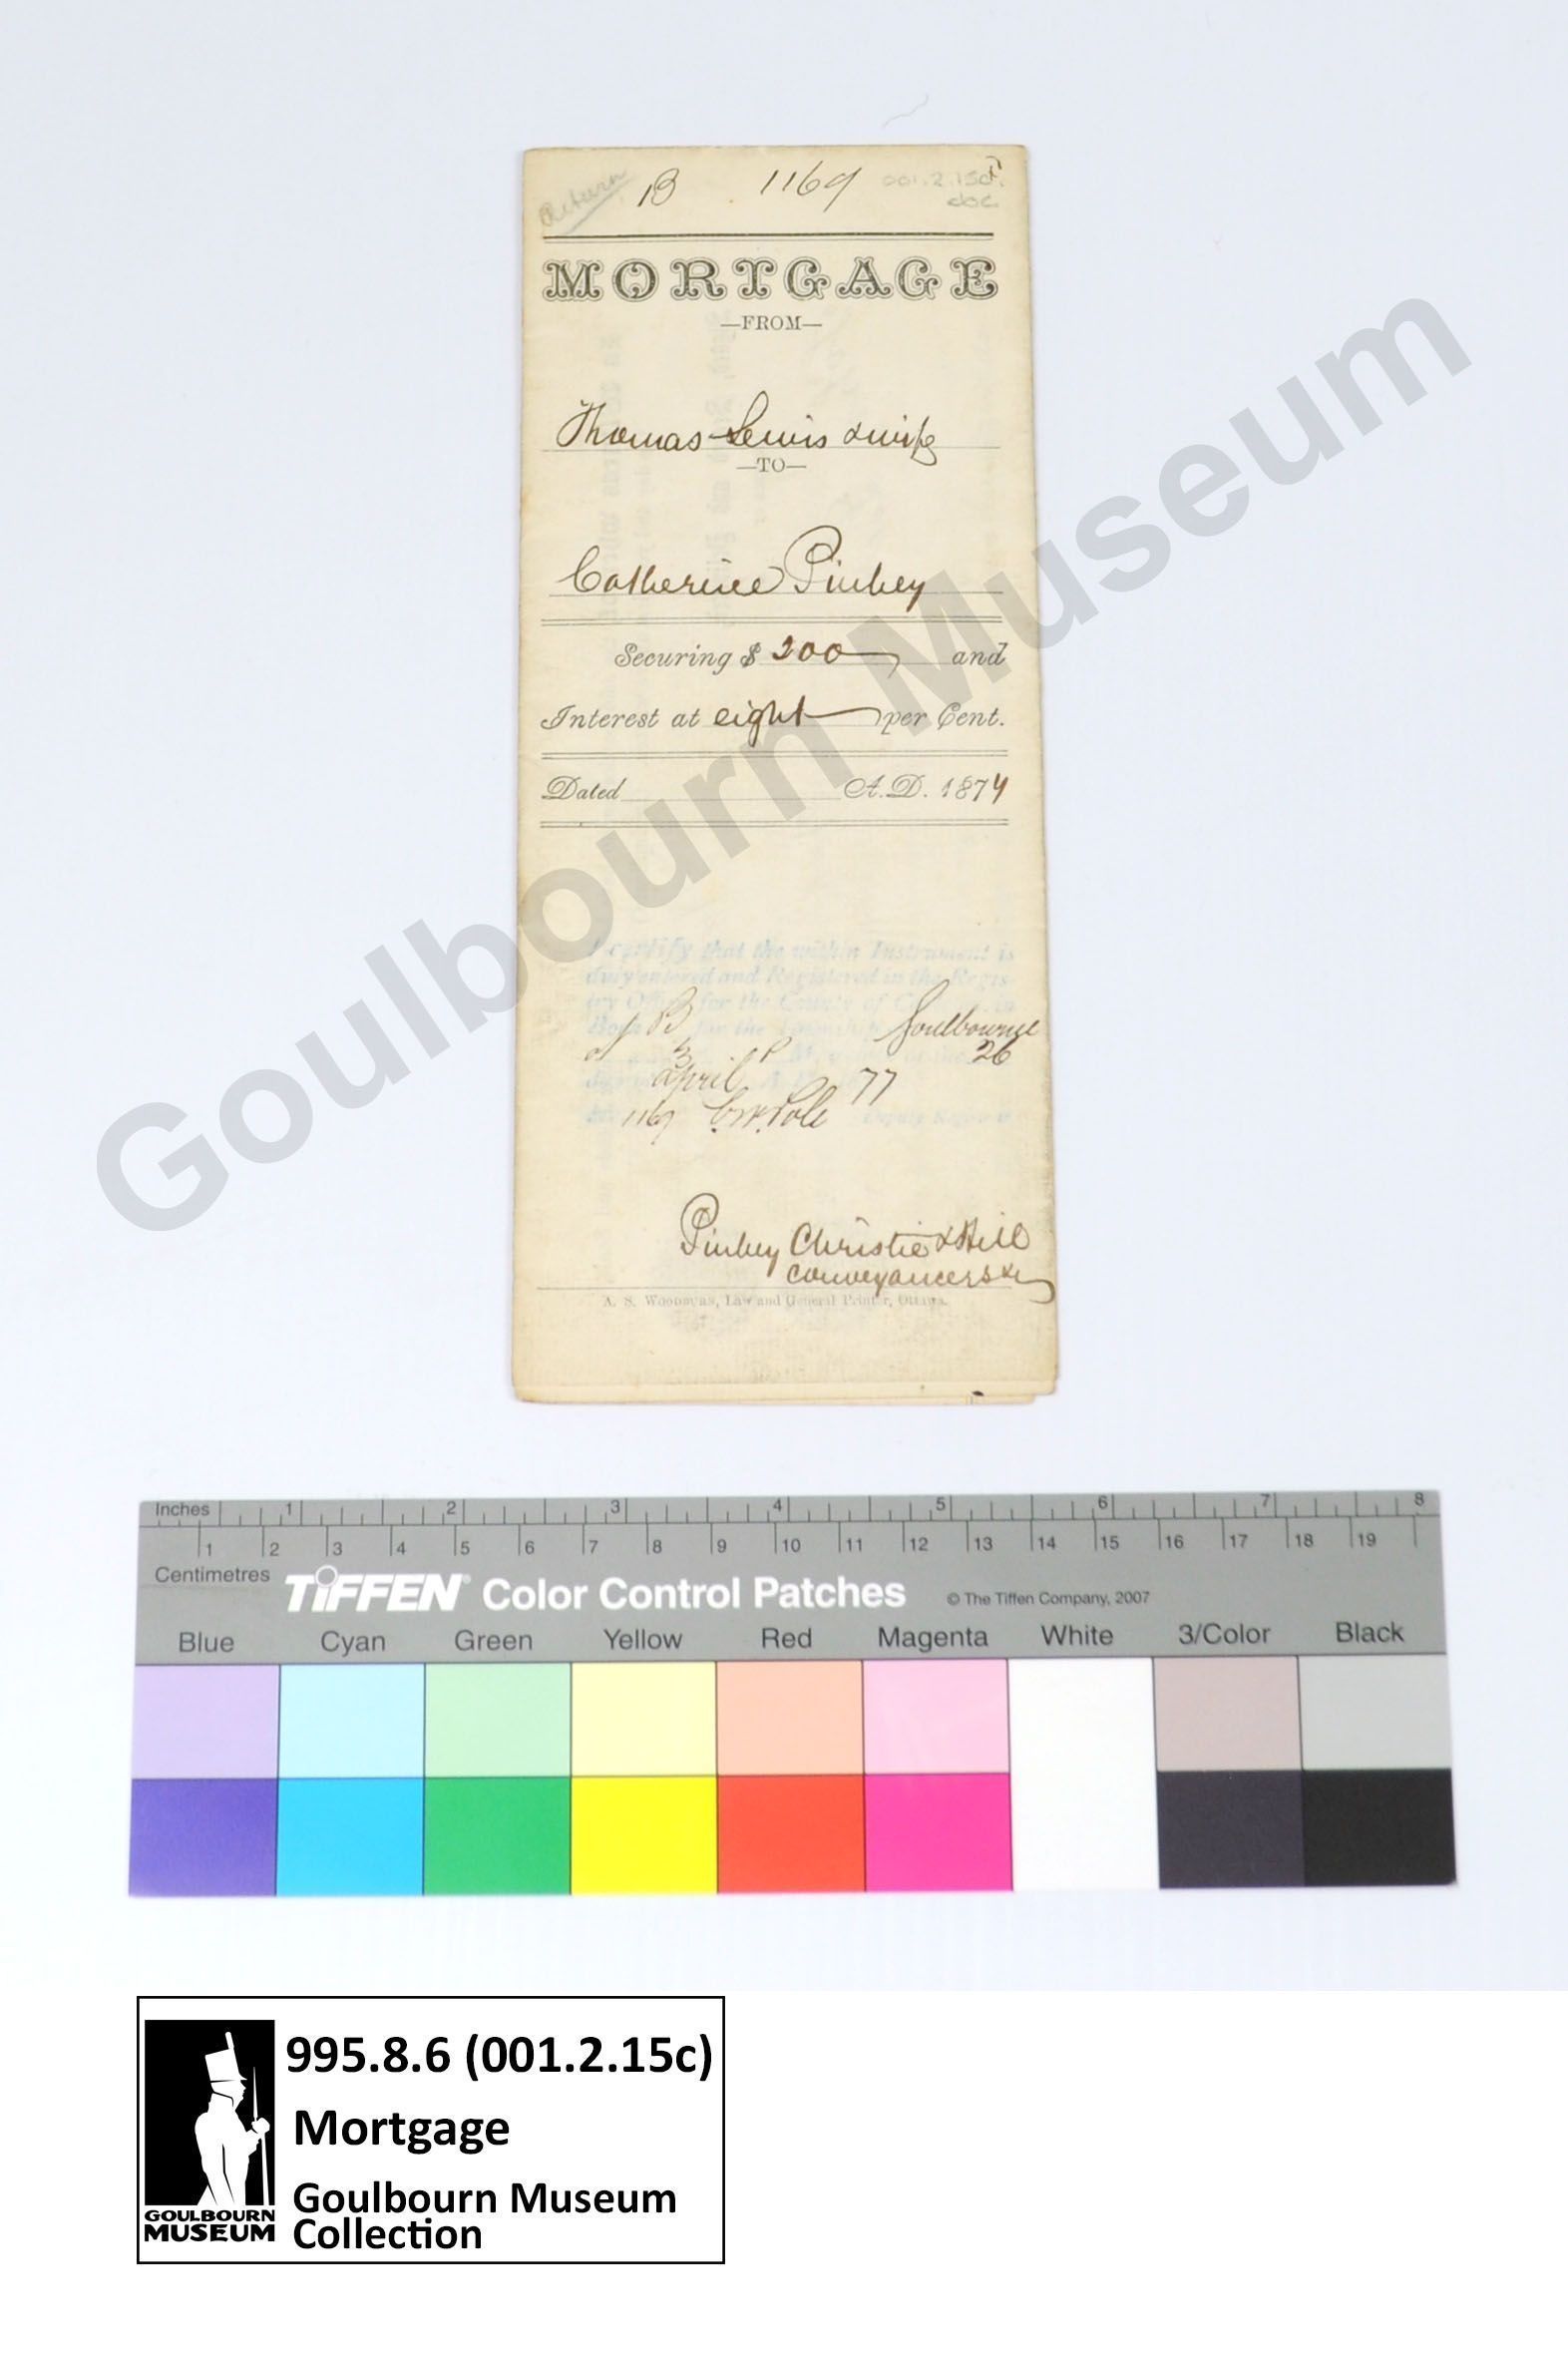 Return B 1169 001.2.15c.
doc.
MORTGAGE
—FROM—
Thomas Lewis & wife
—TO—
Catherine Pinhey
Securing $ 200 and
Interest at eight per Cent.
Dated A.D. 1874
I certify that the within Instrument is
duly entered and Registered in the Regis-
try Office for the County of in
Book B for the Township Goulbourne
at 3 P M, 26
April 77
1169 C.W. Pole Deputy Registrar
Pinhey Christie & Hill
Conveyancers &c
A. S. WOODBURN, Law and General Printer, Ottawa.
Goulbourn Museum
Inches 1 2 3 4 5 6 7 8
1 2 3 4 5 6 7 8 9 10 11 12 13 14 15 16 17 18 19
Centimetres
TIFFEN® Color Control Patches © The Tiffen Company, 2007
Blue Cyan Green Yellow Red Magenta White 3/Color Black
995.8.6 (001.2.15c)
Mortgage
Goulbourn Museum
Collection
GOULBOURN
MUSEUM